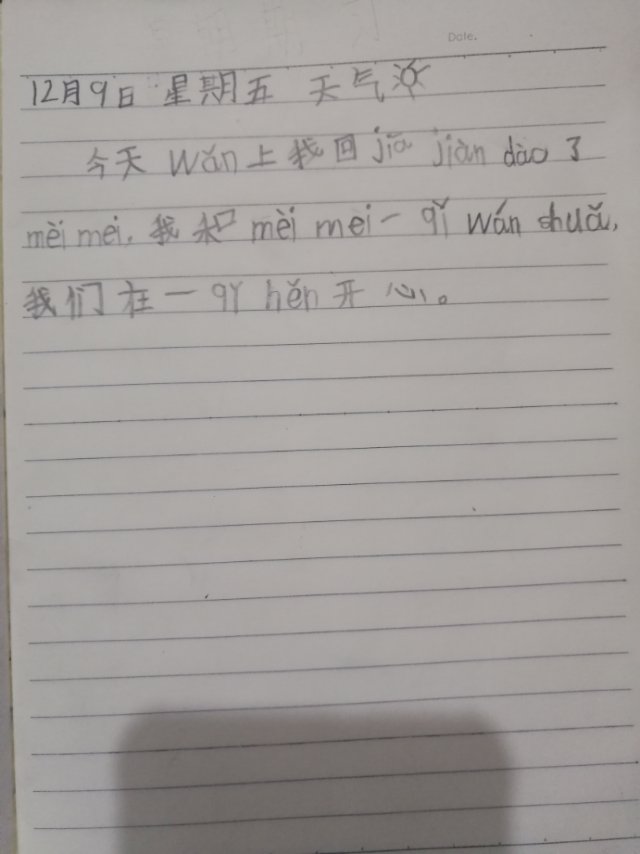 Date.
12月9日 星期五 天气
今天 wǎn上我回jiā jiàn dào 了
mèi mei, 我和 mèi mei 一 qǐ wán shuǎ,
我们在一 qǐ hěn 开心。